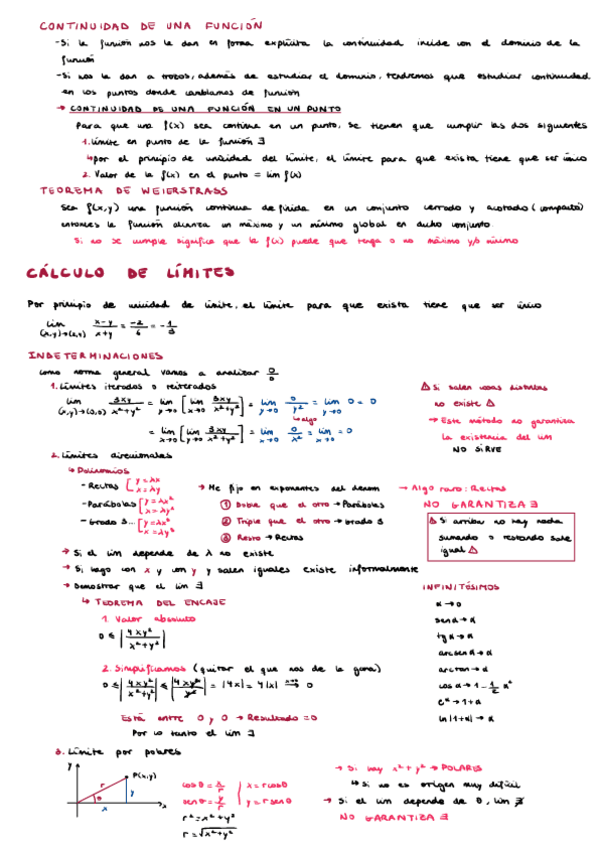 CONTINUIDAD DE UNA FUNCIÓN
-Si la función nos la dan en forma explícita la continuidad incide con el dominio de la
función
-Si nos la dan a trozos, además de estudiar el dominio, tendremos que estudiar continuidad
en los puntos donde cambiamos de función
→ CONTINUIDAD DE UNA FUNCIÓN EN UN PUNTO
Para que una f(x) sea continua en un punto, se tienen que cumplir las dos siguientes
1. límite en punto de la función ∃
↳ por el principio de unicidad del límite, el límite para que exista tiene que ser único
2. Valor de la f(x) en el punto = lim f(x)
TEOREMA DE WEIERSTRASS
Sea f(x,y) una función continua definida en un conjunto cerrado y acotado (compacto)
entonces la función alcanza un máximo y un mínimo global en dicho conjunto
Si no se cumple significa que la f(x) puede que tenga o no máximo y/o mínimo
CÁLCULO DE LÍMITES
Por principio de unicidad de límite, el límite para que exista tiene que ser único
lim (x-y)/(x+y) = -2/6 = -1/3
INDETERMINACIONES
como norma general vamos a analizar 0/0
1. Límites iterados o reiterados
lim (x,y)→(0,0) 3xy/(x²+y²) = lim y→0 [lim x→0 3xy/(x²+y²)] = lim y→0 0/y² = lim y→0 0 = 0
↳ algo
= lim x→0 [lim y→0 3xy/(x²+y²)] = lim x→0 0/x² = lim x→0 = 0
⚠ Si salen cosas distintas
no existe ⚠
→ Este método no garantiza
la existencia del lim
NO SIRVE
2. Límites direccionales
↳ Polinomios
- Rectas [ y = λx
x = λy
- Parábolas [ y = λx²
x = λy²
- Grado 3... [ y = λx³
x = λy³
→ Me fijo en exponentes del denom
① Doble que el otro → Parábolas
② Triple que el otro → Grado 3
③ Resto → Rectas
→ Algo raro: Rectas
NO GARANTIZA ∃
⚠ Si arriba no hay nada
sumando o restando sale
igual ⚠
→ Si el lim depende de λ no existe
→ Si hago con x y con y y salen iguales existe informalmente
→ Demostrar que el lim ∃
↳ TEOREMA DEL ENCAJE
1. Valor absoluto
0 ≤ |4xy²/(x²+y²)|
2. Simplificamos (quitar el que nos de la gana)
0 ≤ |4xy²/(x²+y²)| ≤ |4xy²/y²| = |4x| = 4|x| x→0 → 0
Está entre 0 y 0 → Resultado = 0
Por lo tanto el lim ∃
INFINITÉSIMOS
α → 0
sen α → α
tg α → α
arcsen α → α
arctan → α
cos α → 1 - 1/2 α²
e^α → 1 + α
ln |1+α| → α
3. Límite por polares
y
P(x,y)
r
θ
y
x
x
cos θ = x/r
sen θ = y/r
x = r cos θ
y = r sen θ
r² = x² + y²
r = √(x²+y²)
→ Si hay x² + y² → POLARES
↳ Si no es origen muy difícil
→ Si el lim depende de θ, lim ∄
NO GARANTIZA ∃